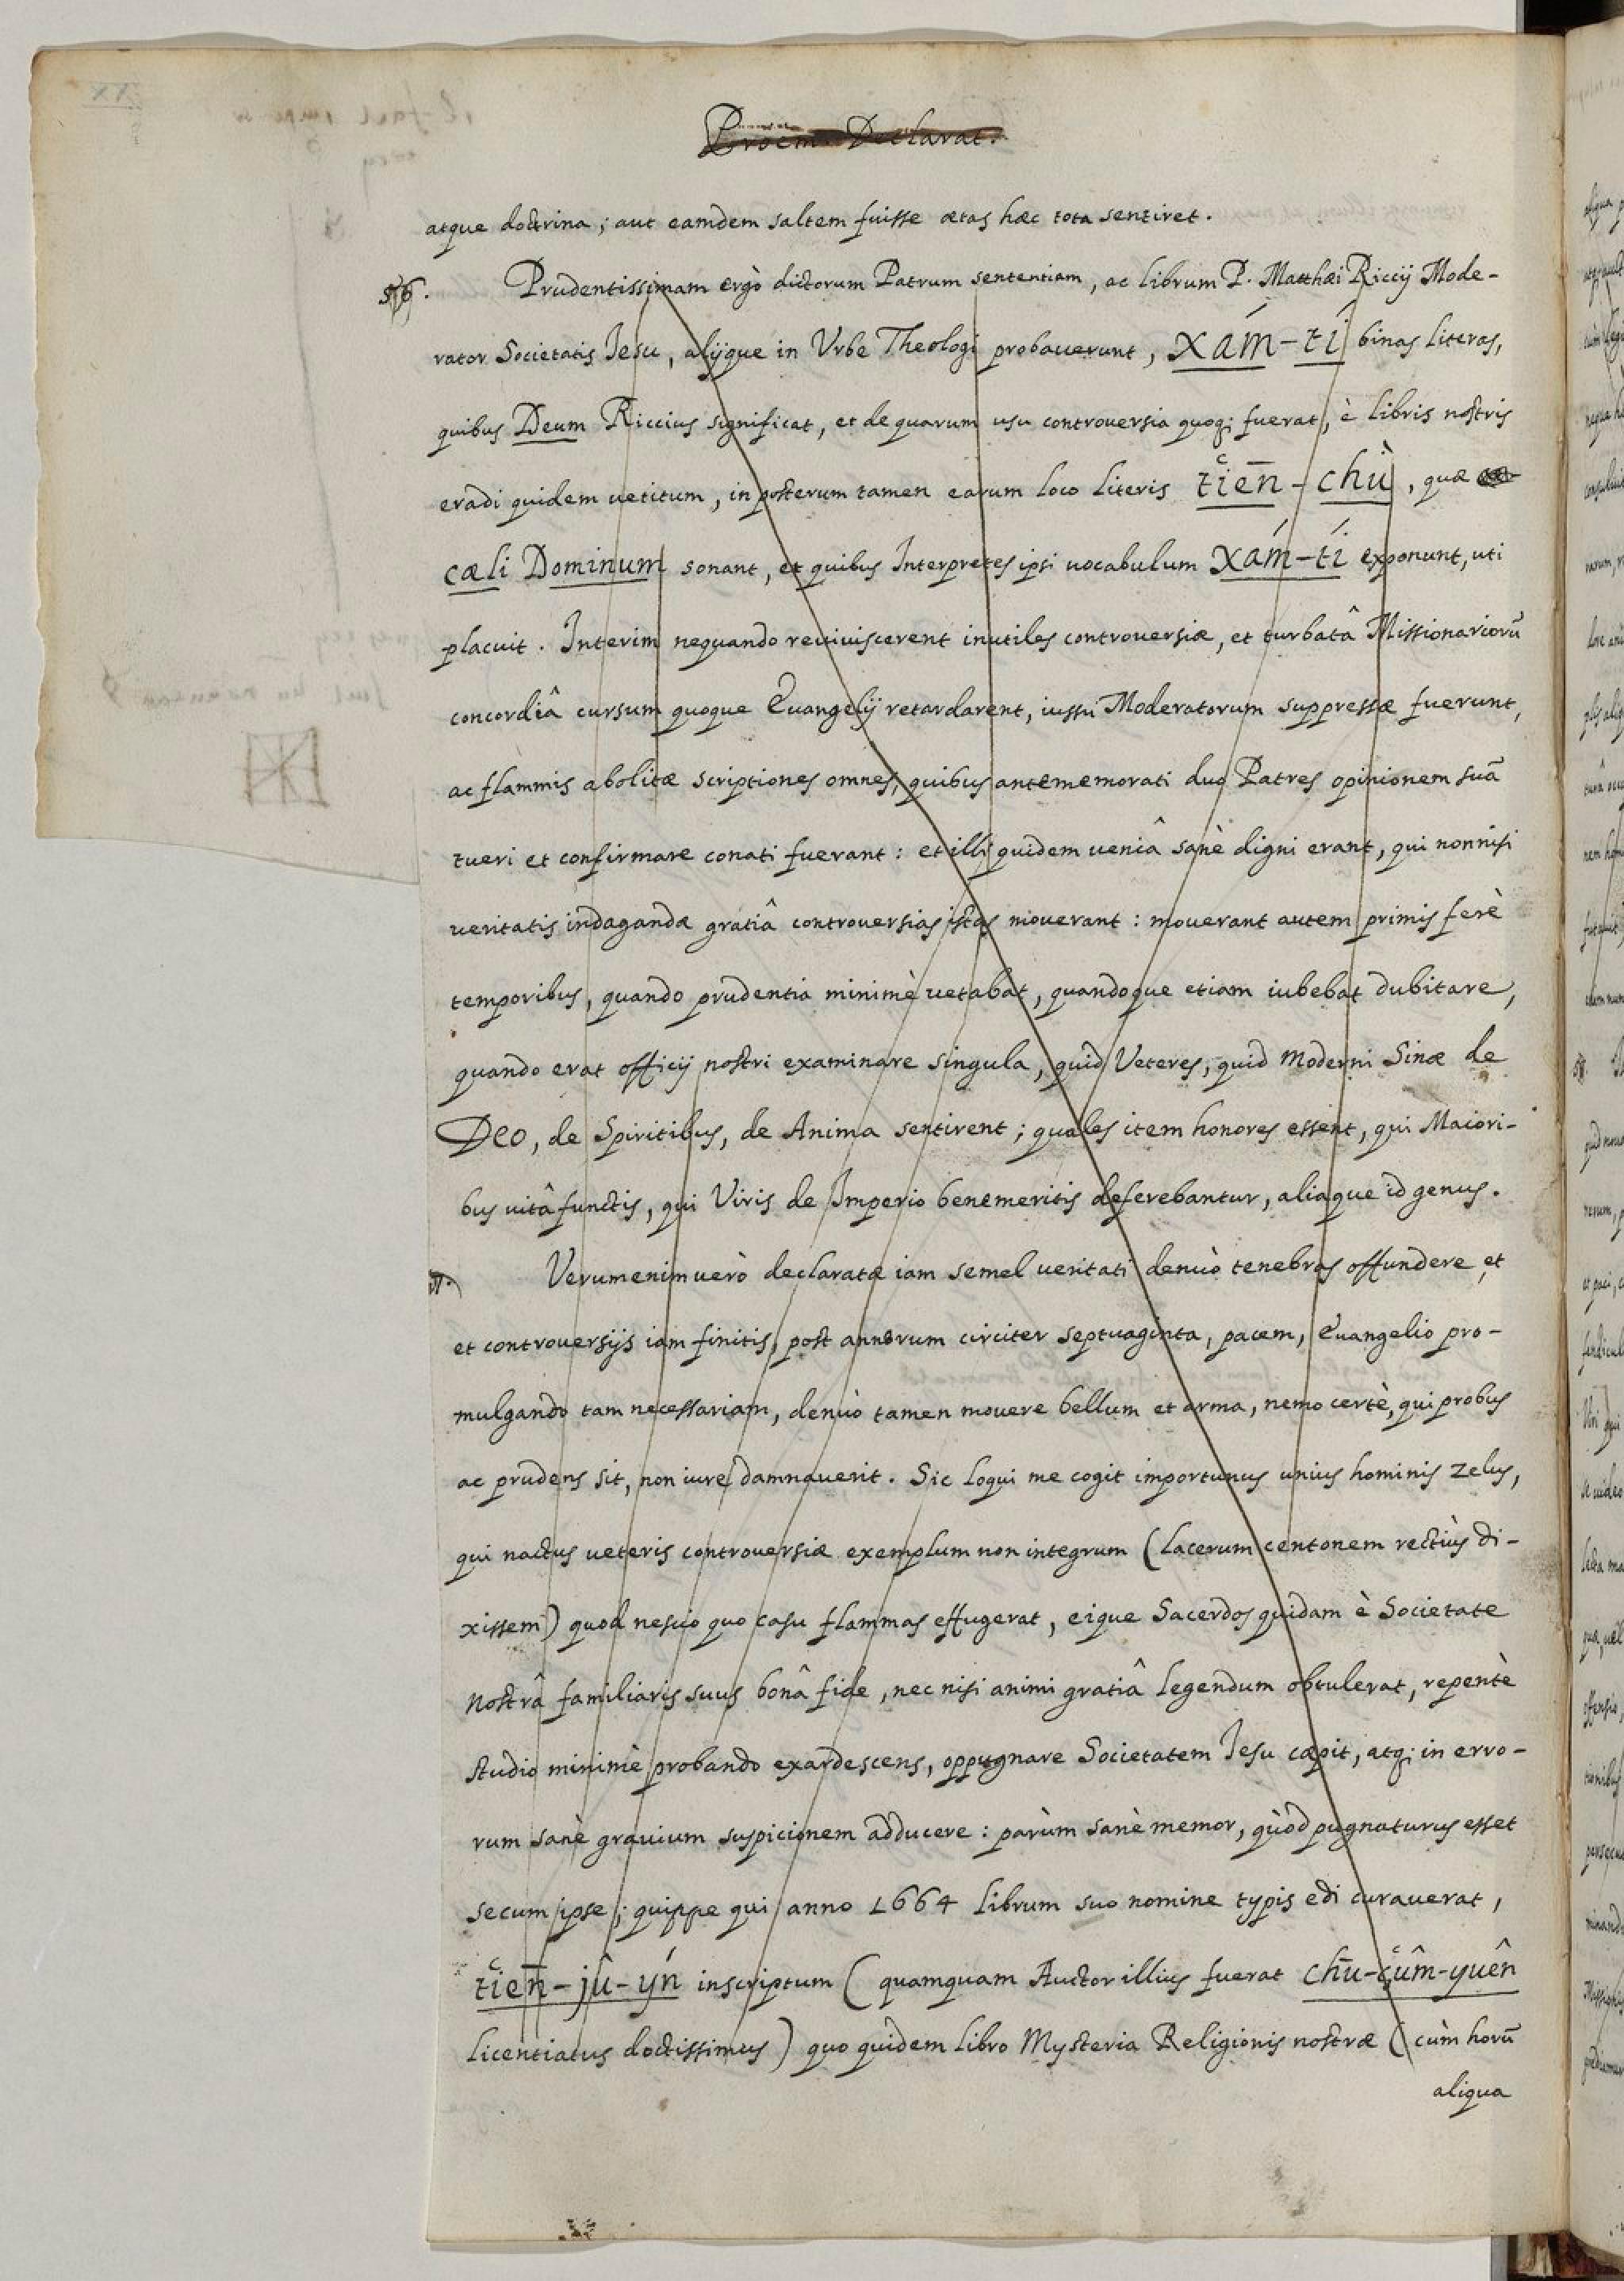 Proëm. Declarat.
atque doctrina; aut eamdem saltem fuisse ætas hæc tota sentiret.
Prudentissimam ergò dictorum Patrum sententiam, ac librum P. Matthæi Riccij Mode-
rator Societatis Iesu, alijque in Vrbe Theologi probauerunt, xám-tí binas literas,
quibus Deum Riccius significat, et de quarum usu controuersia quoq; fuerat, è libris nostris
eradi quidem uetitum, in posterum tamen earum loco literis tiēn-chù, quæ
cæli Dominum sonant, et quibus Interpretes ipsi uocabulum xám-tí exponunt, uti
placuit. Interim nequando reuiuiscerent inutiles controuersiæ, et turbatâ Missionariorũ
concordiâ cursum quoque Euangelij retardarent, iussu Moderatorum suppressæ fuerunt,
ac flammis abolitæ scriptiones omnes, quibus antememorati duo Patres opinionem suã
tueri et confirmare conati fuerant: et illi quidem ueniâ sanè digni erant, qui nonnisi
ueritatis indagandæ gratiâ controuersias istas mouerant: mouerant autem primis ferè
temporibus, quando prudentia minimè uetabat, quandoque etiam iubebat dubitare,
quando erat officij nostri examinare singula, quid Veteres, quid moderni Sinæ de
Deo, de Spiritibus, de Anima sentirent; quales item honores essent, qui Maiori-
bus uitâ functis, qui Viris de Imperio benemeritis deferebantur, aliaque id genus.
Verumenimuerò declaratæ iam semel ueritati denuò tenebras offundere, et
et controuersijs iam finitis, post annorum circiter septuaginta, pacem, Euangelio pro-
mulgando tam necessariam, denuò tamen mouere bellum et arma, nemo certè, qui probus
ac prudens sit, non iure damnauerit. Sic loqui me cogit importunus unius hominis zelus,
qui nactus ueteris controuersiæ exemplum non integrum (lacerum centonem rectiùs di-
xissem) quod nescio quo casu flammas effugerat, eique Sacerdos quidam è Societate
nostrâ familiaris suus bonâ fide, nec nisi animi gratiâ legendum obtulerat, repentè
studio minimè probando exardescens, oppugnare Societatem Iesu cæpit, atq; in erro-
rum sanè grauium suspicionem adducere: parùm sanè memor, quòd pugnaturus esset
secum ipse; quippe qui anno 1664 librum suo nomine typis edi curauerat,
tiēn-jû-ýn inscriptum (quamquam Auctor illius fuerat chū-çûm-yuên
licentiatus doctissimus) quo quidem libro Mysteria Religionis nostræ (cùm horũ
aliqua